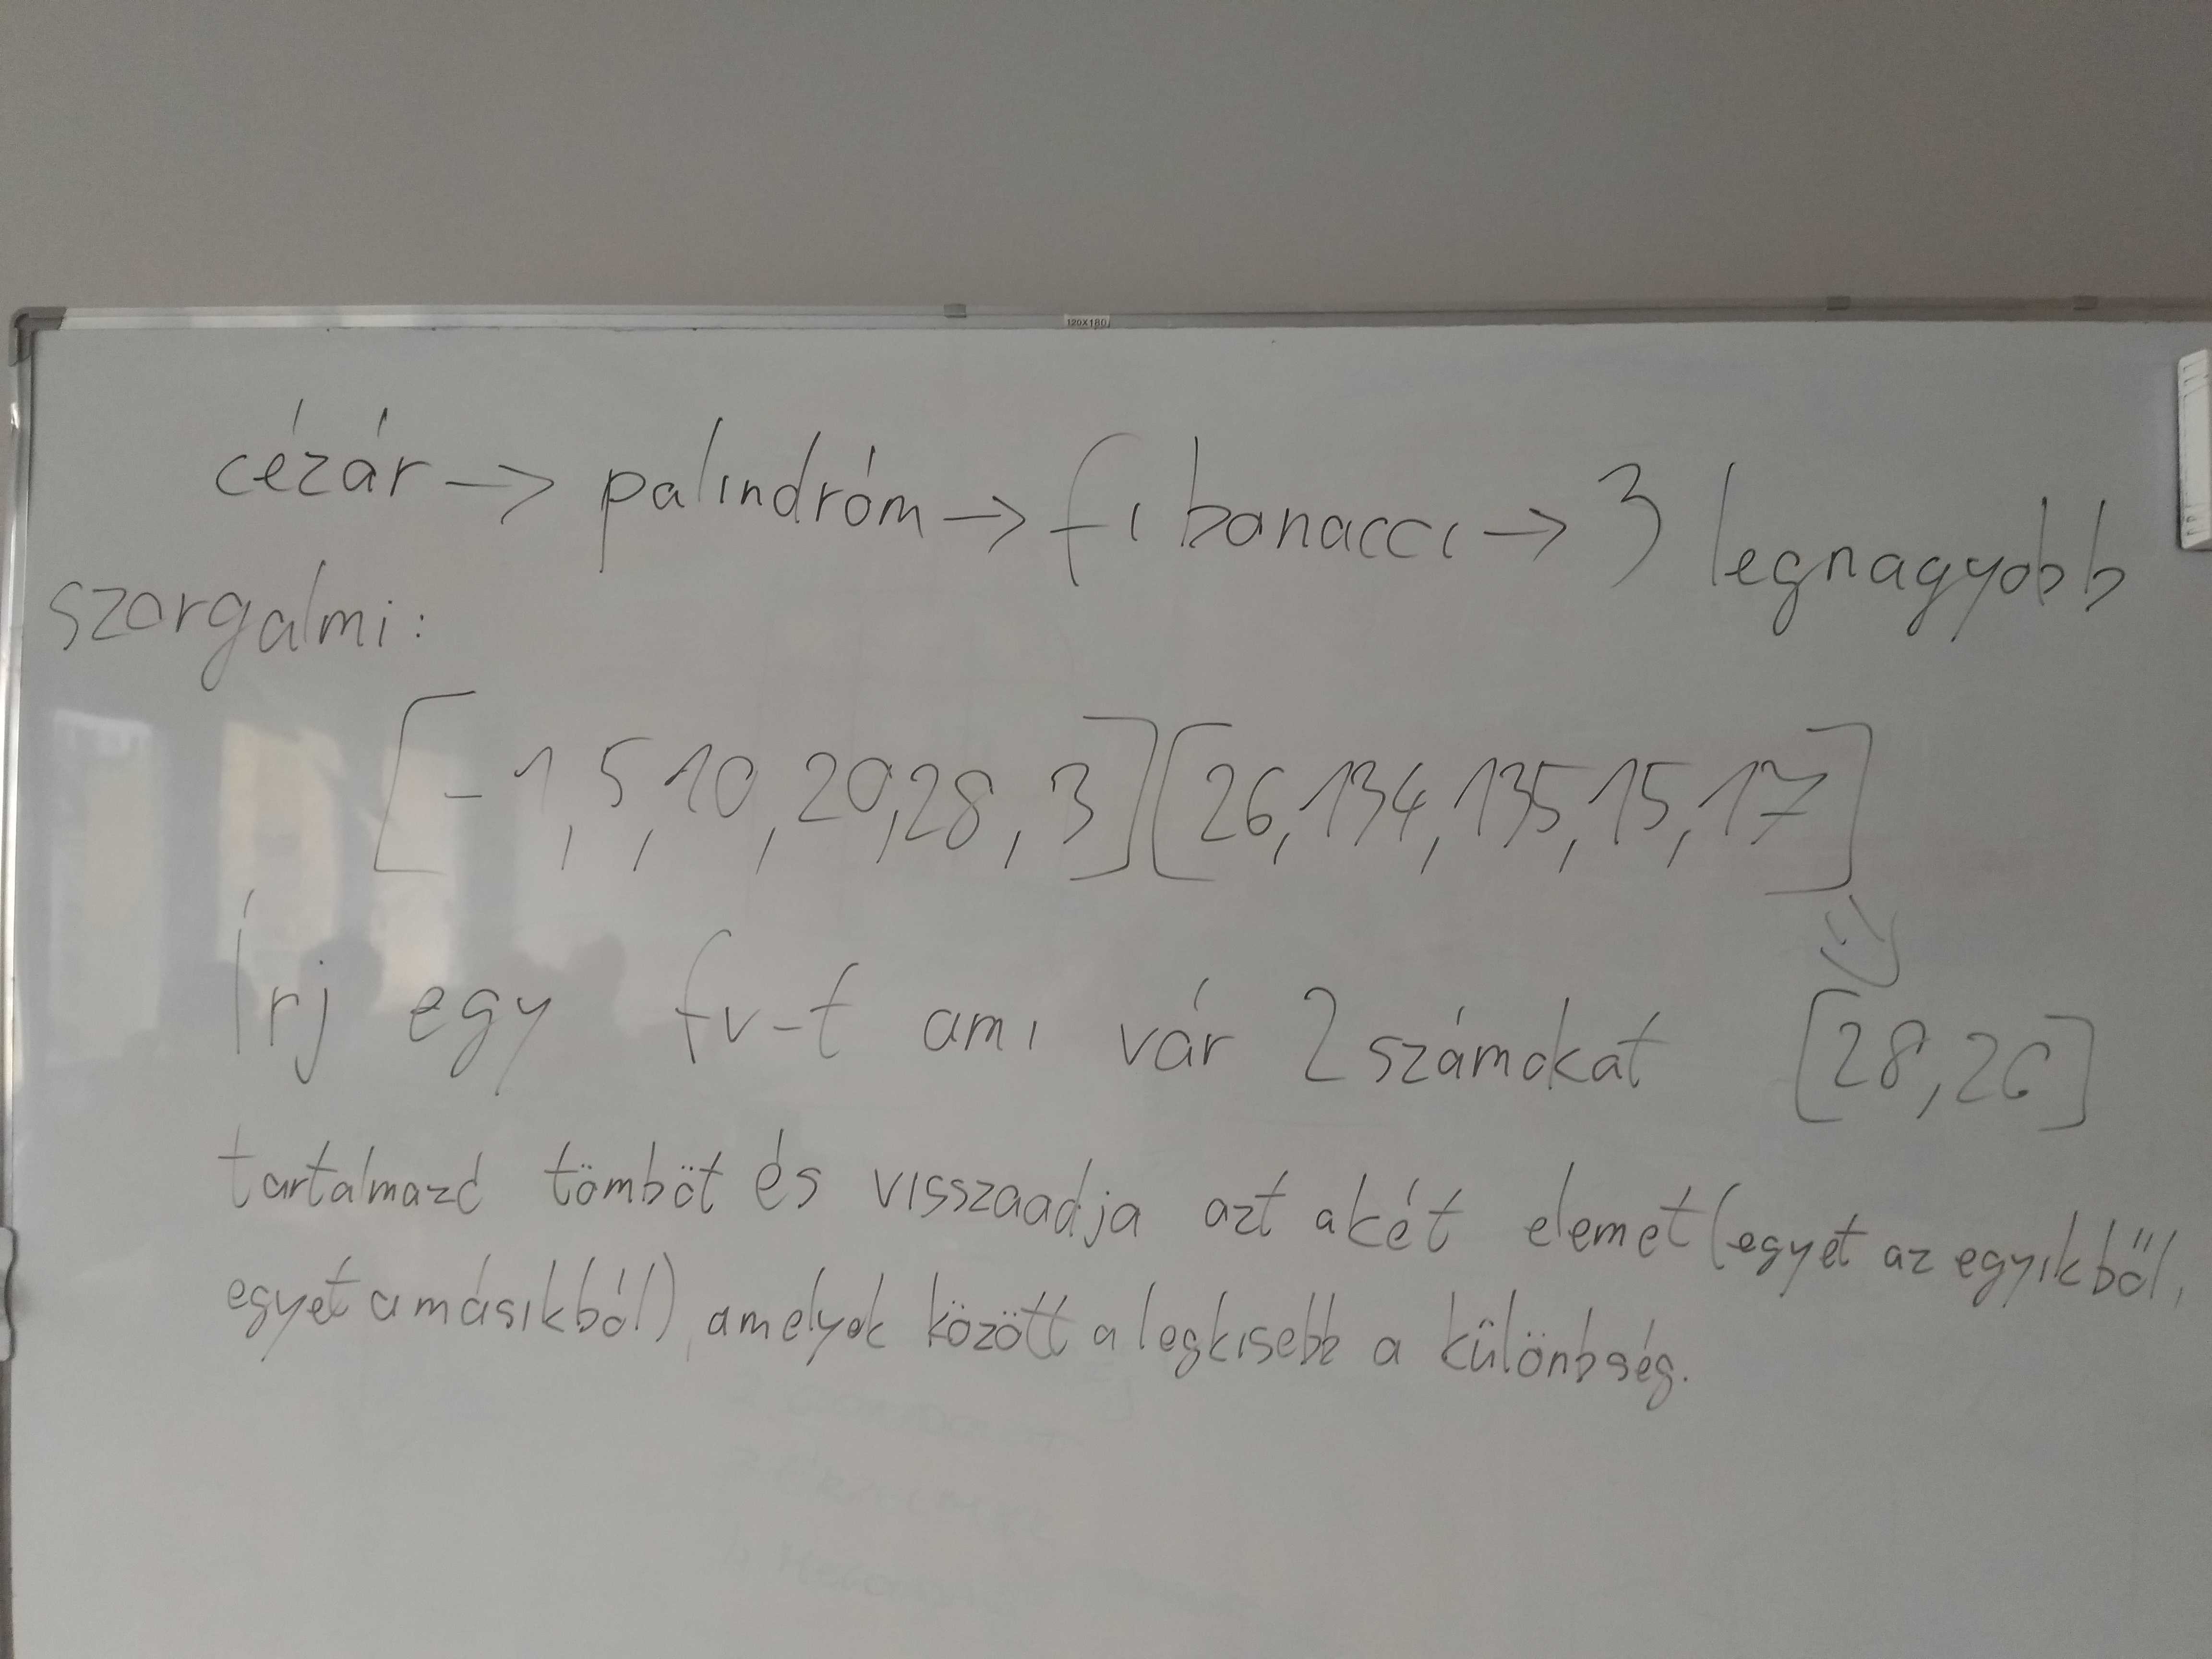 120X180
cézár -> palindróm -> fibonacci -> 3 legnagyobb
szorgalmi:
[-1, 5, 10, 20, 28, 3] [26, 134, 135, 15, 17]
Írj egy fv-t ami vár 2 számokat [28, 26]
tartalmazd tömböt és visszaadja azt akét elemet (egyet az egyikből,
egyet a másikból), amelyek között a legkisebb a külön bség.